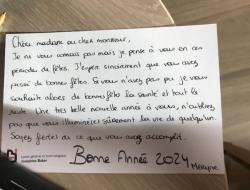 Chère madame ou cher monsieur,
Je ne vous connais pas mais je pense à vous en ces
période de fêtes. J'espère sincèrement que vous avez
passé de bonnes fêtes. Si vous n'avez pas pu je vous
souhaite alors de bonnes fêtes la santé et tout le
reste. Une très belle nouvelle année à vous, n'oubliez
pas que vous illuminerez sûrement la vie de quelqu'un.
Soyez fier(e) de ce que vous avez accomplit.
Bonne Année 2024
Lycée général et technologique
Joséphine Baker